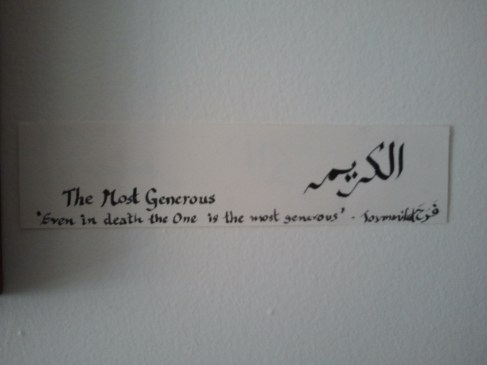 الكريم
The Most Generous
"Even in death the One is the most generous" - فرح